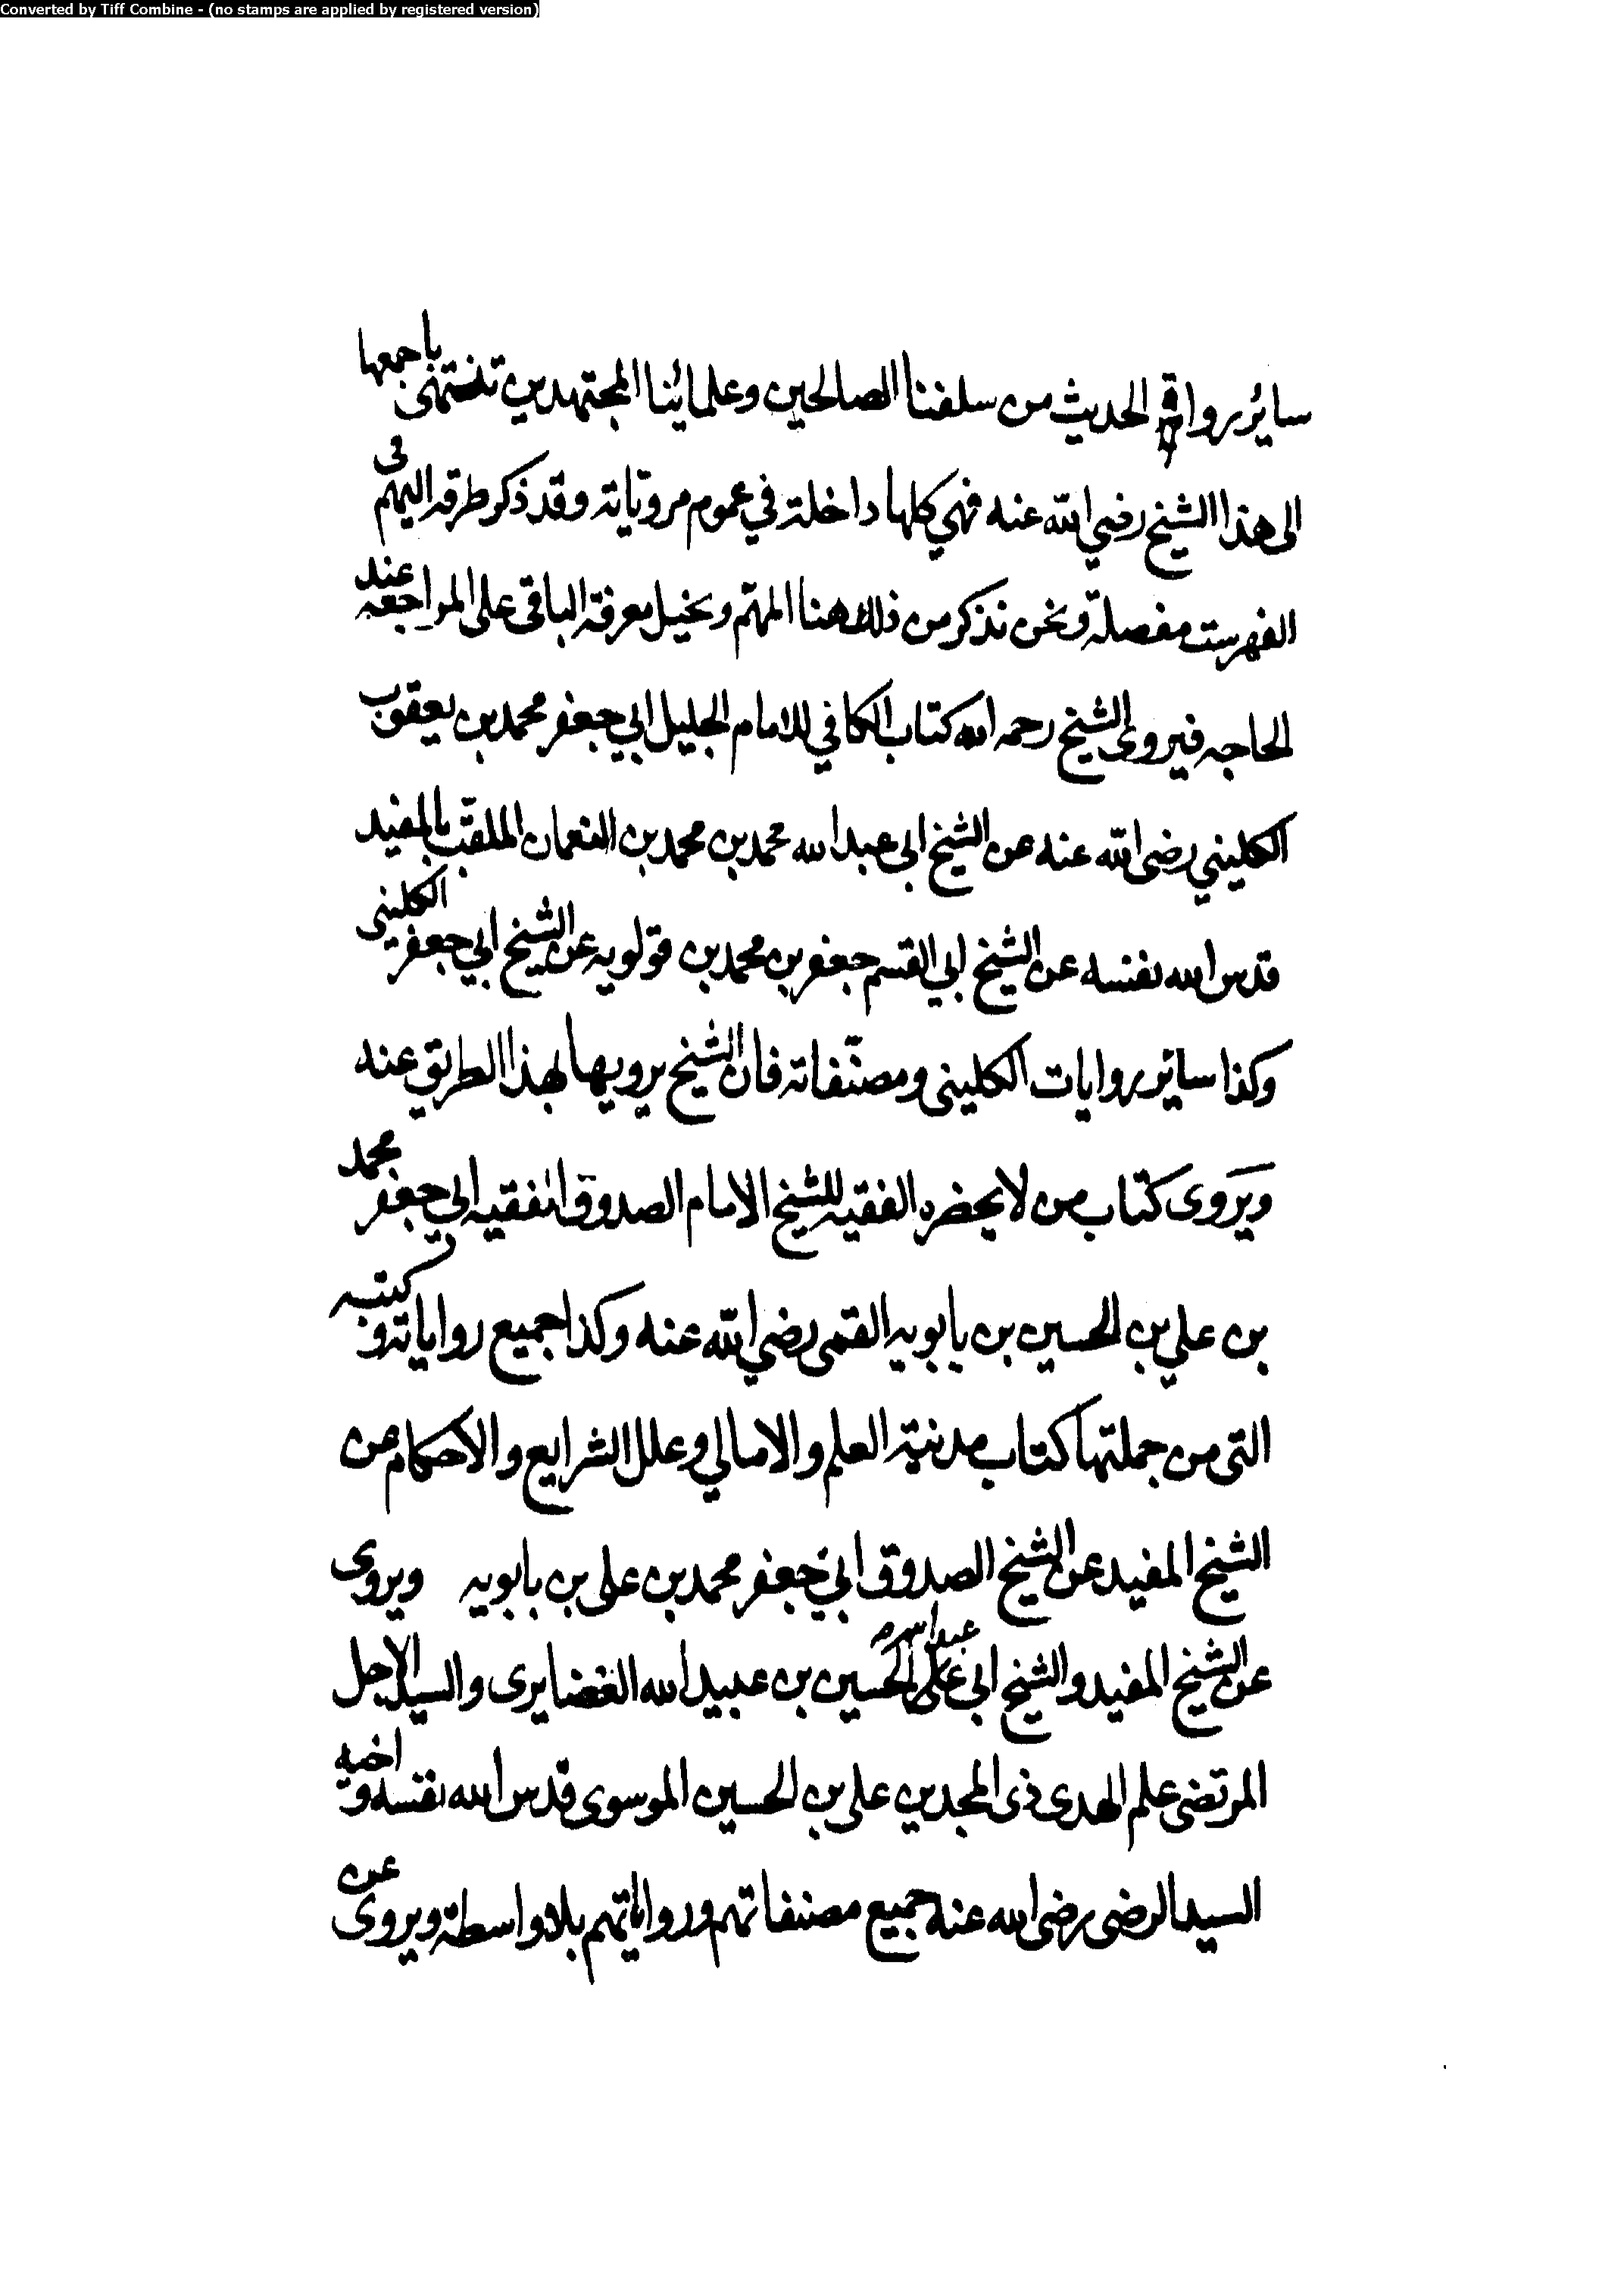 Converted by Tiff Combine - (no stamps are applied by registered version)
ساير رواة الحديث من سلفنا الصالحين وعلمائنا المجتهدين تنتهى باجمعها
الى هذا الشيخ رضي الله عنه فهي كلها داخلة في عموم مروياته وقد ذكر طرقه اليهم فى
الفهرست مفصلة ونحن نذكر من ذلك هنا المهم ونحيل معرفة الباقى على المراجعه عند
الحاجه فيروى الشيخ رحمه الله كتاب الكافي للامام الجليل ابي جعفر محمد بن يعقوب
الكليني رضى الله عنه عن الشيخ ابى عبد الله محمد بن محمد بن النعمان الملقب بالمفيد
قدس الله نفسه عن الشيخ ابي القسم جعفر بن محمد بن قولويه عن الشيخ ابي جعفر الكلينى
وكذا ساير روايات الكلينى ومصنفاته فان الشيخ يرويها بهذا الطريق عنه
ويروى كتاب من لا يحضره الفقيه للشيخ الامام الصدوق الفقيه ابي جعفر محمد
بن علي بن الحسين بن بابويه القمى رضي الله عنه وكذا جميع رواياته وكتبه
التى من جملتها كتاب مدينة العلم والامالي وعلل الشرايع والاحكام عن
الشيخ المفيد عن الشيخ الصدوق ابي جعفر محمد بن على بن بابويه ويروى
عن الشيخ المفيد والشيخ ابي عبد الله الحسين بن عبيد الله الغضايرى والسيد الاجل
المرتضى علم الهدى ذى المجدين على بن الحسين الموسوى قدس الله نفسه واخيه
السيد الرضى رضى الله عنه جميع مصنفاتهم ورواياتهم بلا واسطة ويروى عن